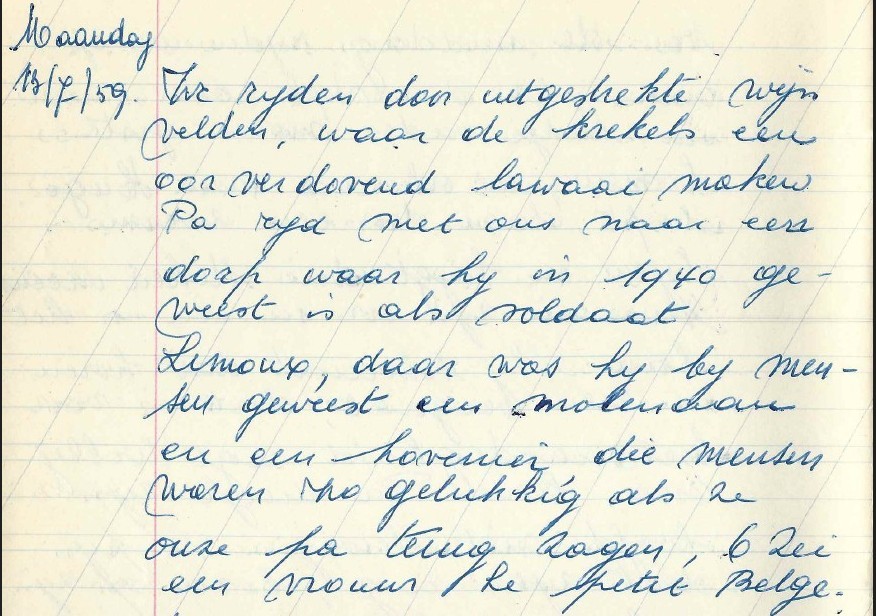 Maandag
13/7/59. We ryden door uitgestrekte wijn
velden, waar de krekels een
oorverdovend lawaai maken
Pa ryd met ons naar een
dorp waar hy in 1940 ge-
weest is als soldaat
Limoux, daar was hy by men-
sen geweest een molenaar
en een hovenier, die mensen
waren zo gelukkig als ze
onze pa terug zagen, O zei
een vrouw le petit Belge.